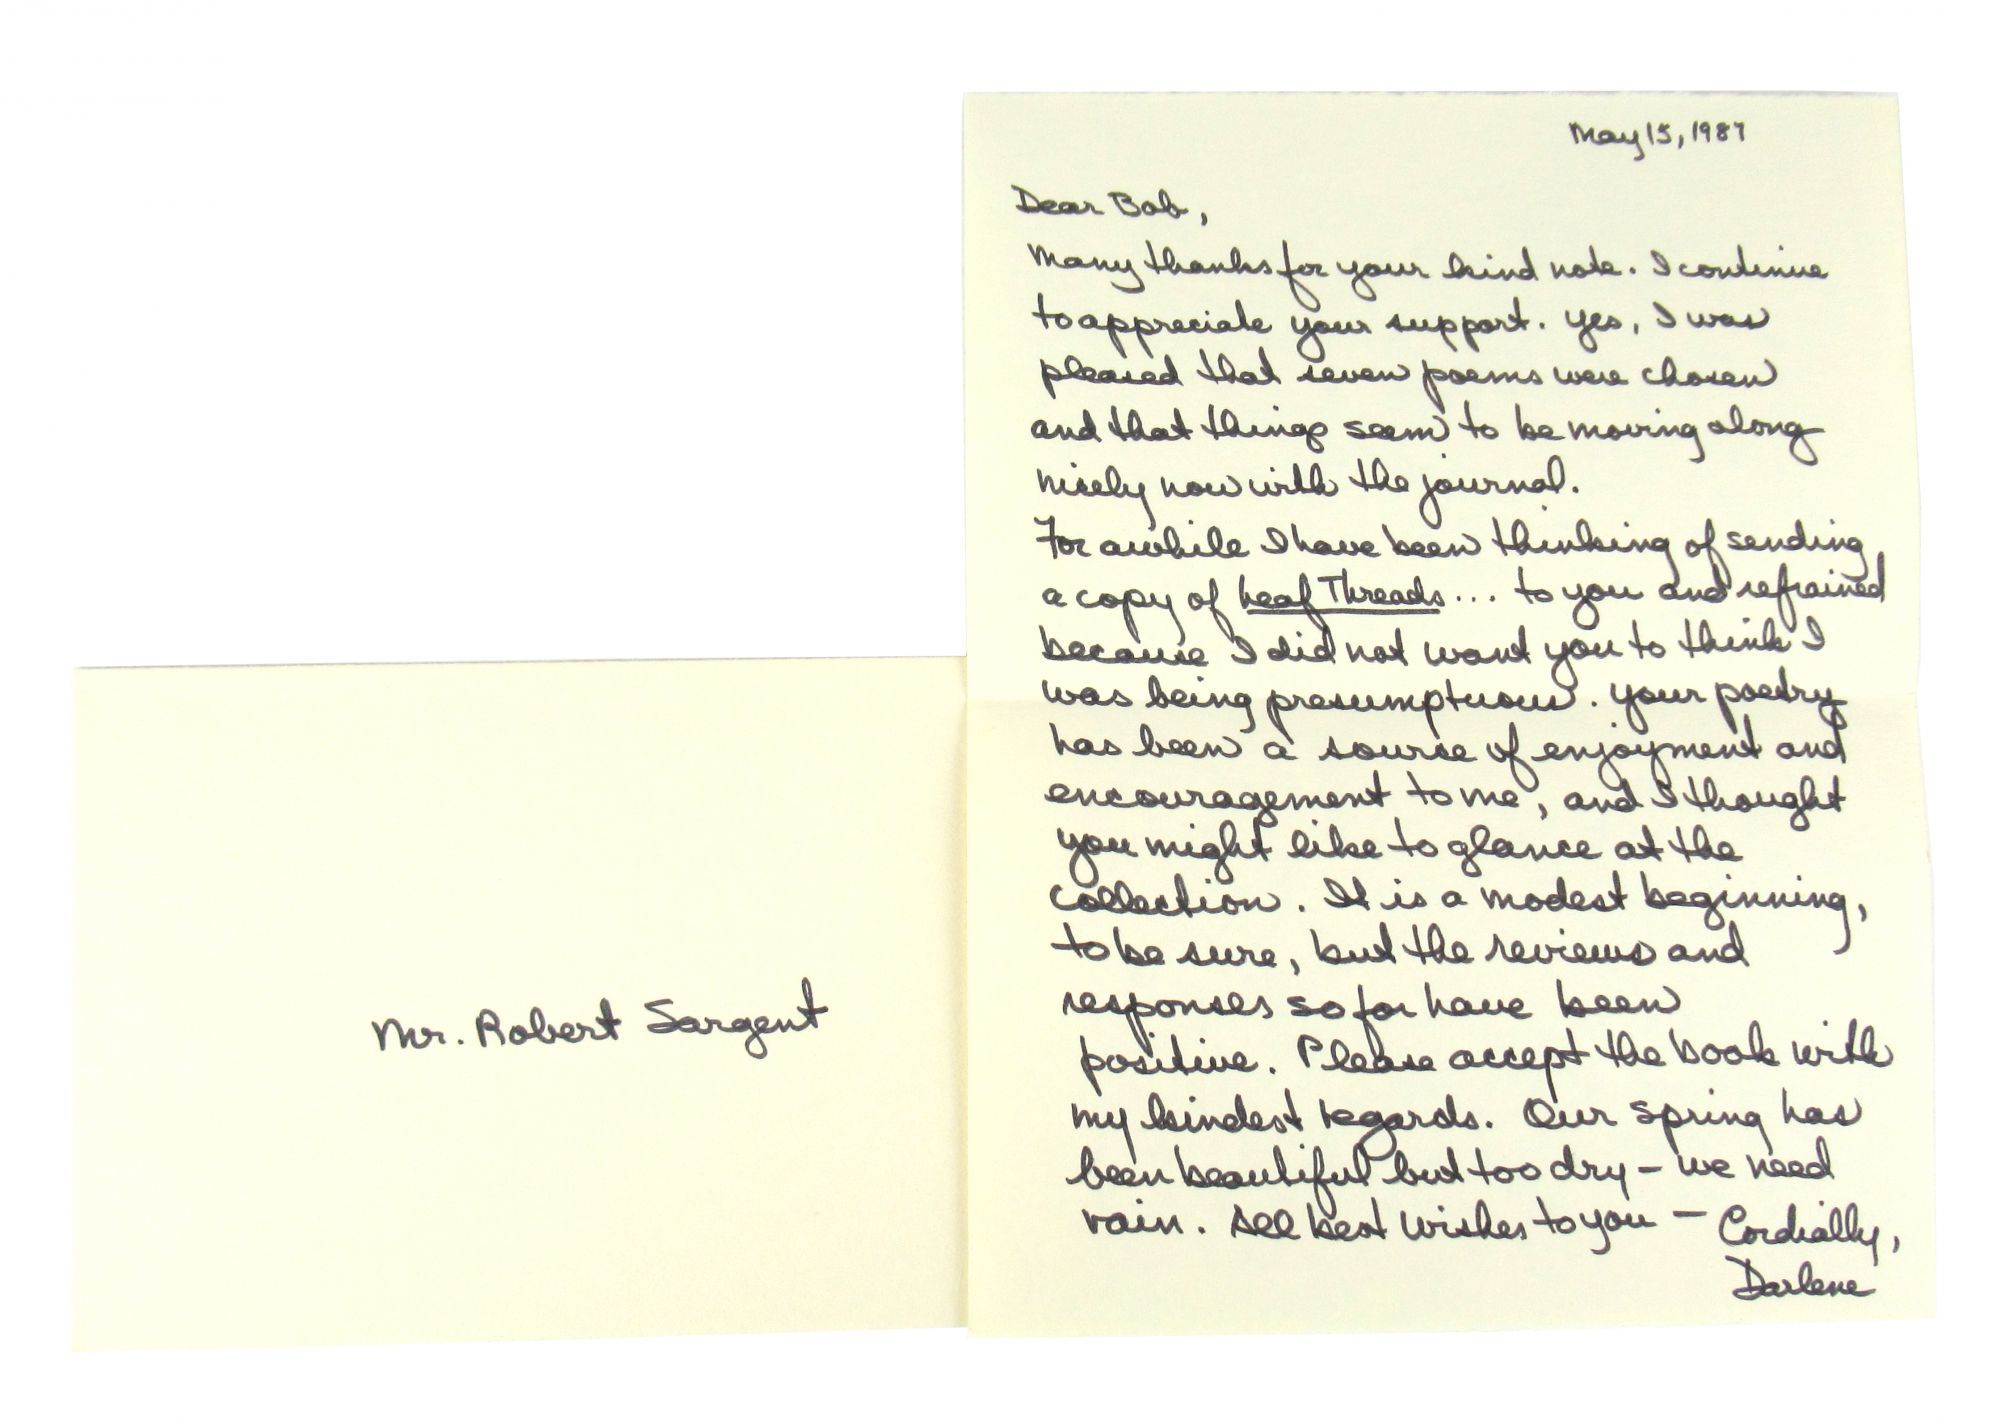 Mr. Robert Sargent
May 15, 1987
Dear Bob,
Many thanks for your kind note. I continue
to appreciate your support. Yes, I was
pleased that seven poems were chosen
and that things seem to be moving along
nicely now with the journal.
For awhile I have been thinking of sending
a copy of Leaf Threads... to you and refrained
because I did not want you to think I
was being presumptuous. Your poetry
has been a source of enjoyment and
encouragement to me, and I thought
you might like to glance at the
collection. It is a modest beginning,
to be sure, but the reviews and
responses so far have been
positive. Please accept the book with
my kindest regards. Our Spring has
been beautiful but too dry – we need
rain. All best wishes to you – Cordially,
Darlene